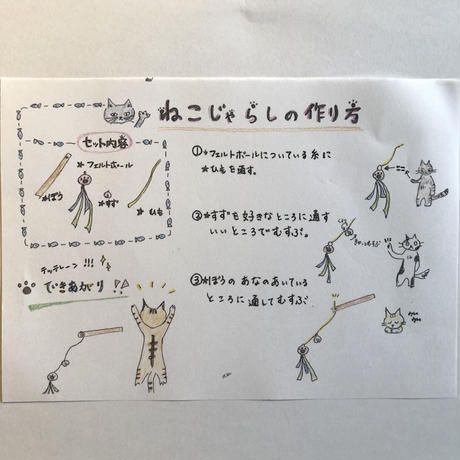 ねこじゃらしの作り方
セット内容
フェルトボール
ぼう
すず
ひも
①フェルトボールについている糸に
ひもを通す。
②すずを好きなところに通す
いいところでむすぶ。
③ぼうのあなのあいている
ところに通してむすぶ
テッテレーン!!!
できあがり!!